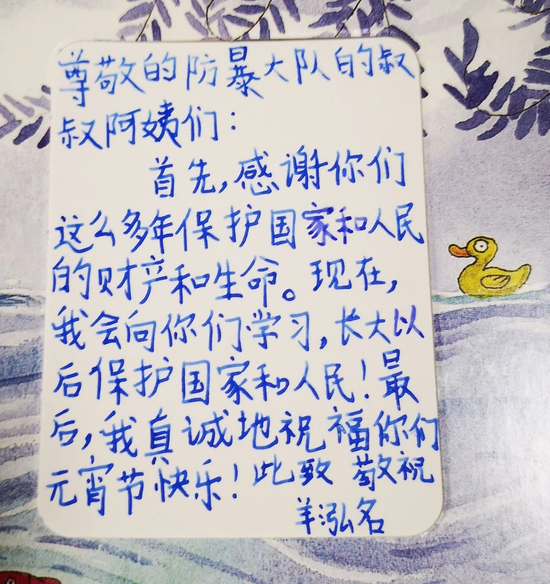 尊敬的防暴大队的叔
叔阿姨们：
首先，感谢你们
这么多年保护国家和人民
的财产和生命。现在，
我会向你们学习，长大以
后保护国家和人民！最
后，我真诚地祝福你们
元宵节快乐！此致 敬祝
羊泓名